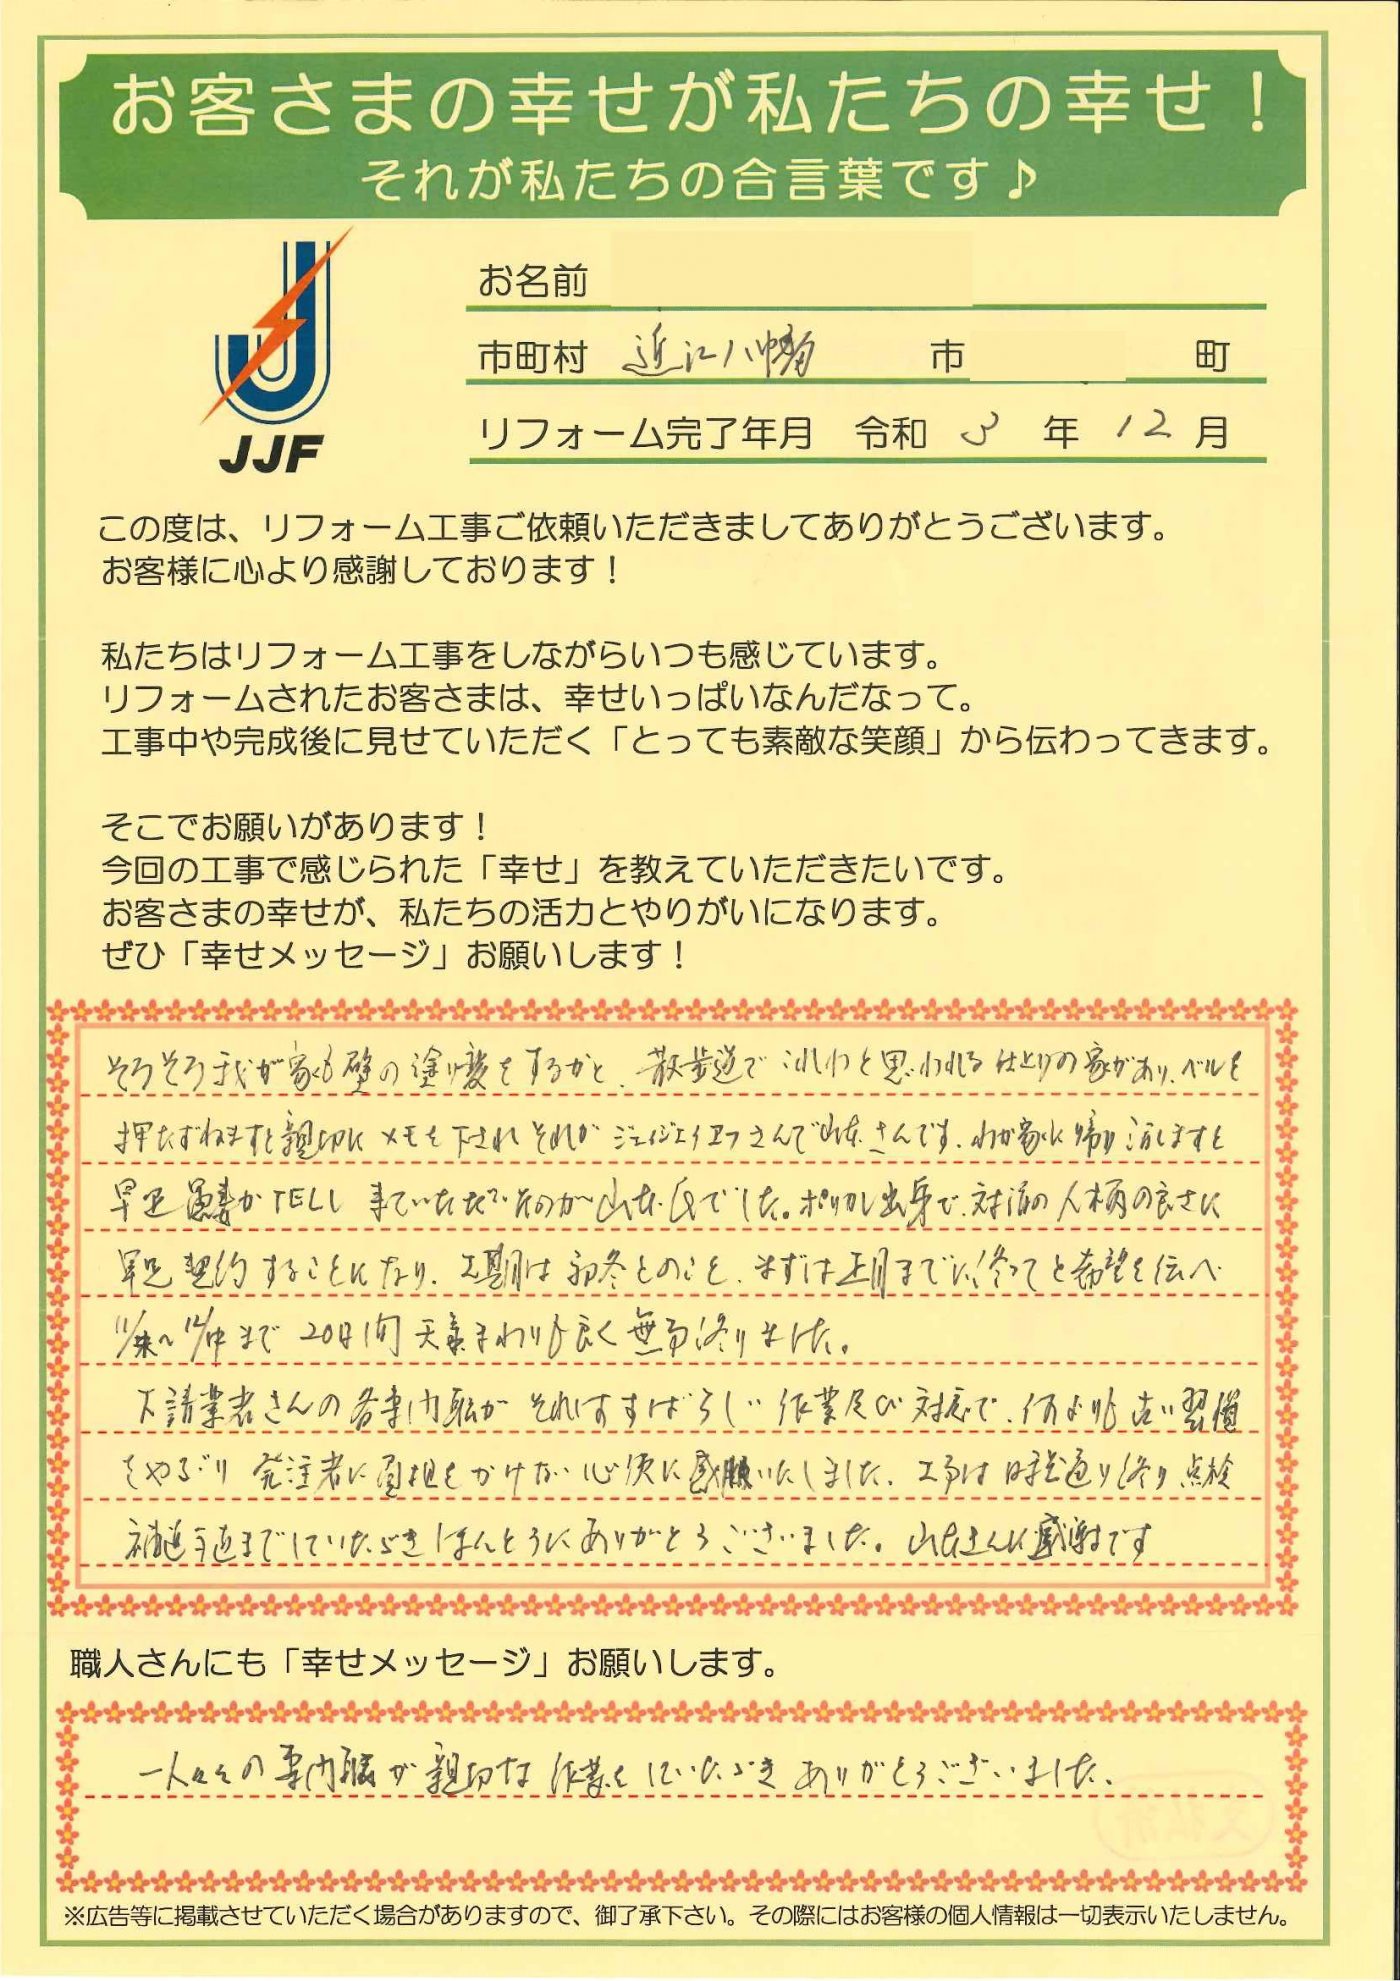 お客さまの幸せが私たちの幸せ！
それが私たちの合言葉です♪
JJF
お名前
市町村 近江八幡 市 町
リフォーム完了年月 令和 3 年 12 月
この度は、リフォーム工事ご依頼いただきましてありがとうございます。
お客様に心より感謝しております！
私たちはリフォーム工事をしながらいつも感じています。
リフォームされたお客さまは、幸せいっぱいなんだなって。
工事中や完成後に見せていただく「とっても素敵な笑顔」から伝わってきます。
そこでお願いがあります！
今回の工事で感じられた「幸せ」を教えていただきたいです。
お客さまの幸せが、私たちの活力とやりがいになります。
ぜひ「幸せメッセージ」お願いします！
そろそろ我が家も壁の塗り変をするかと、散歩道でこれわと思われる仕上りの家があり、ベルを
押したずねますと親切にメモを下されそれがジェイジェイエフさんで山本さんです、わが家に帰り話しますと
早速愚妻がTELし来ていただいたのが山本氏でした。ポリカレ出身で、対話の人柄の良さに
早速契約することになり、工期は初冬とのこと、まずは正月までに終ってと希望を伝へ
11/末〜12/中まで20日間天気まわりも良く無事終りました。
下請業者さんの各専門職がそれはすばらしい作業及び対応で、何よりも古い習慣
をやぶり発注者に負担をかけない心使に感服いたしました、工事は日程通り終り点検
手直までしていただきほんとうにありがとうございました。山本さんに感謝です
職人さんにも「幸せメッセージ」お願いします。
一人々々の専門職が親切な作業をしていただきありがとうございました、
※広告等に掲載させていただく場合がありますので、御了承下さい。その際にはお客様の個人情報は一切表示いたしません。